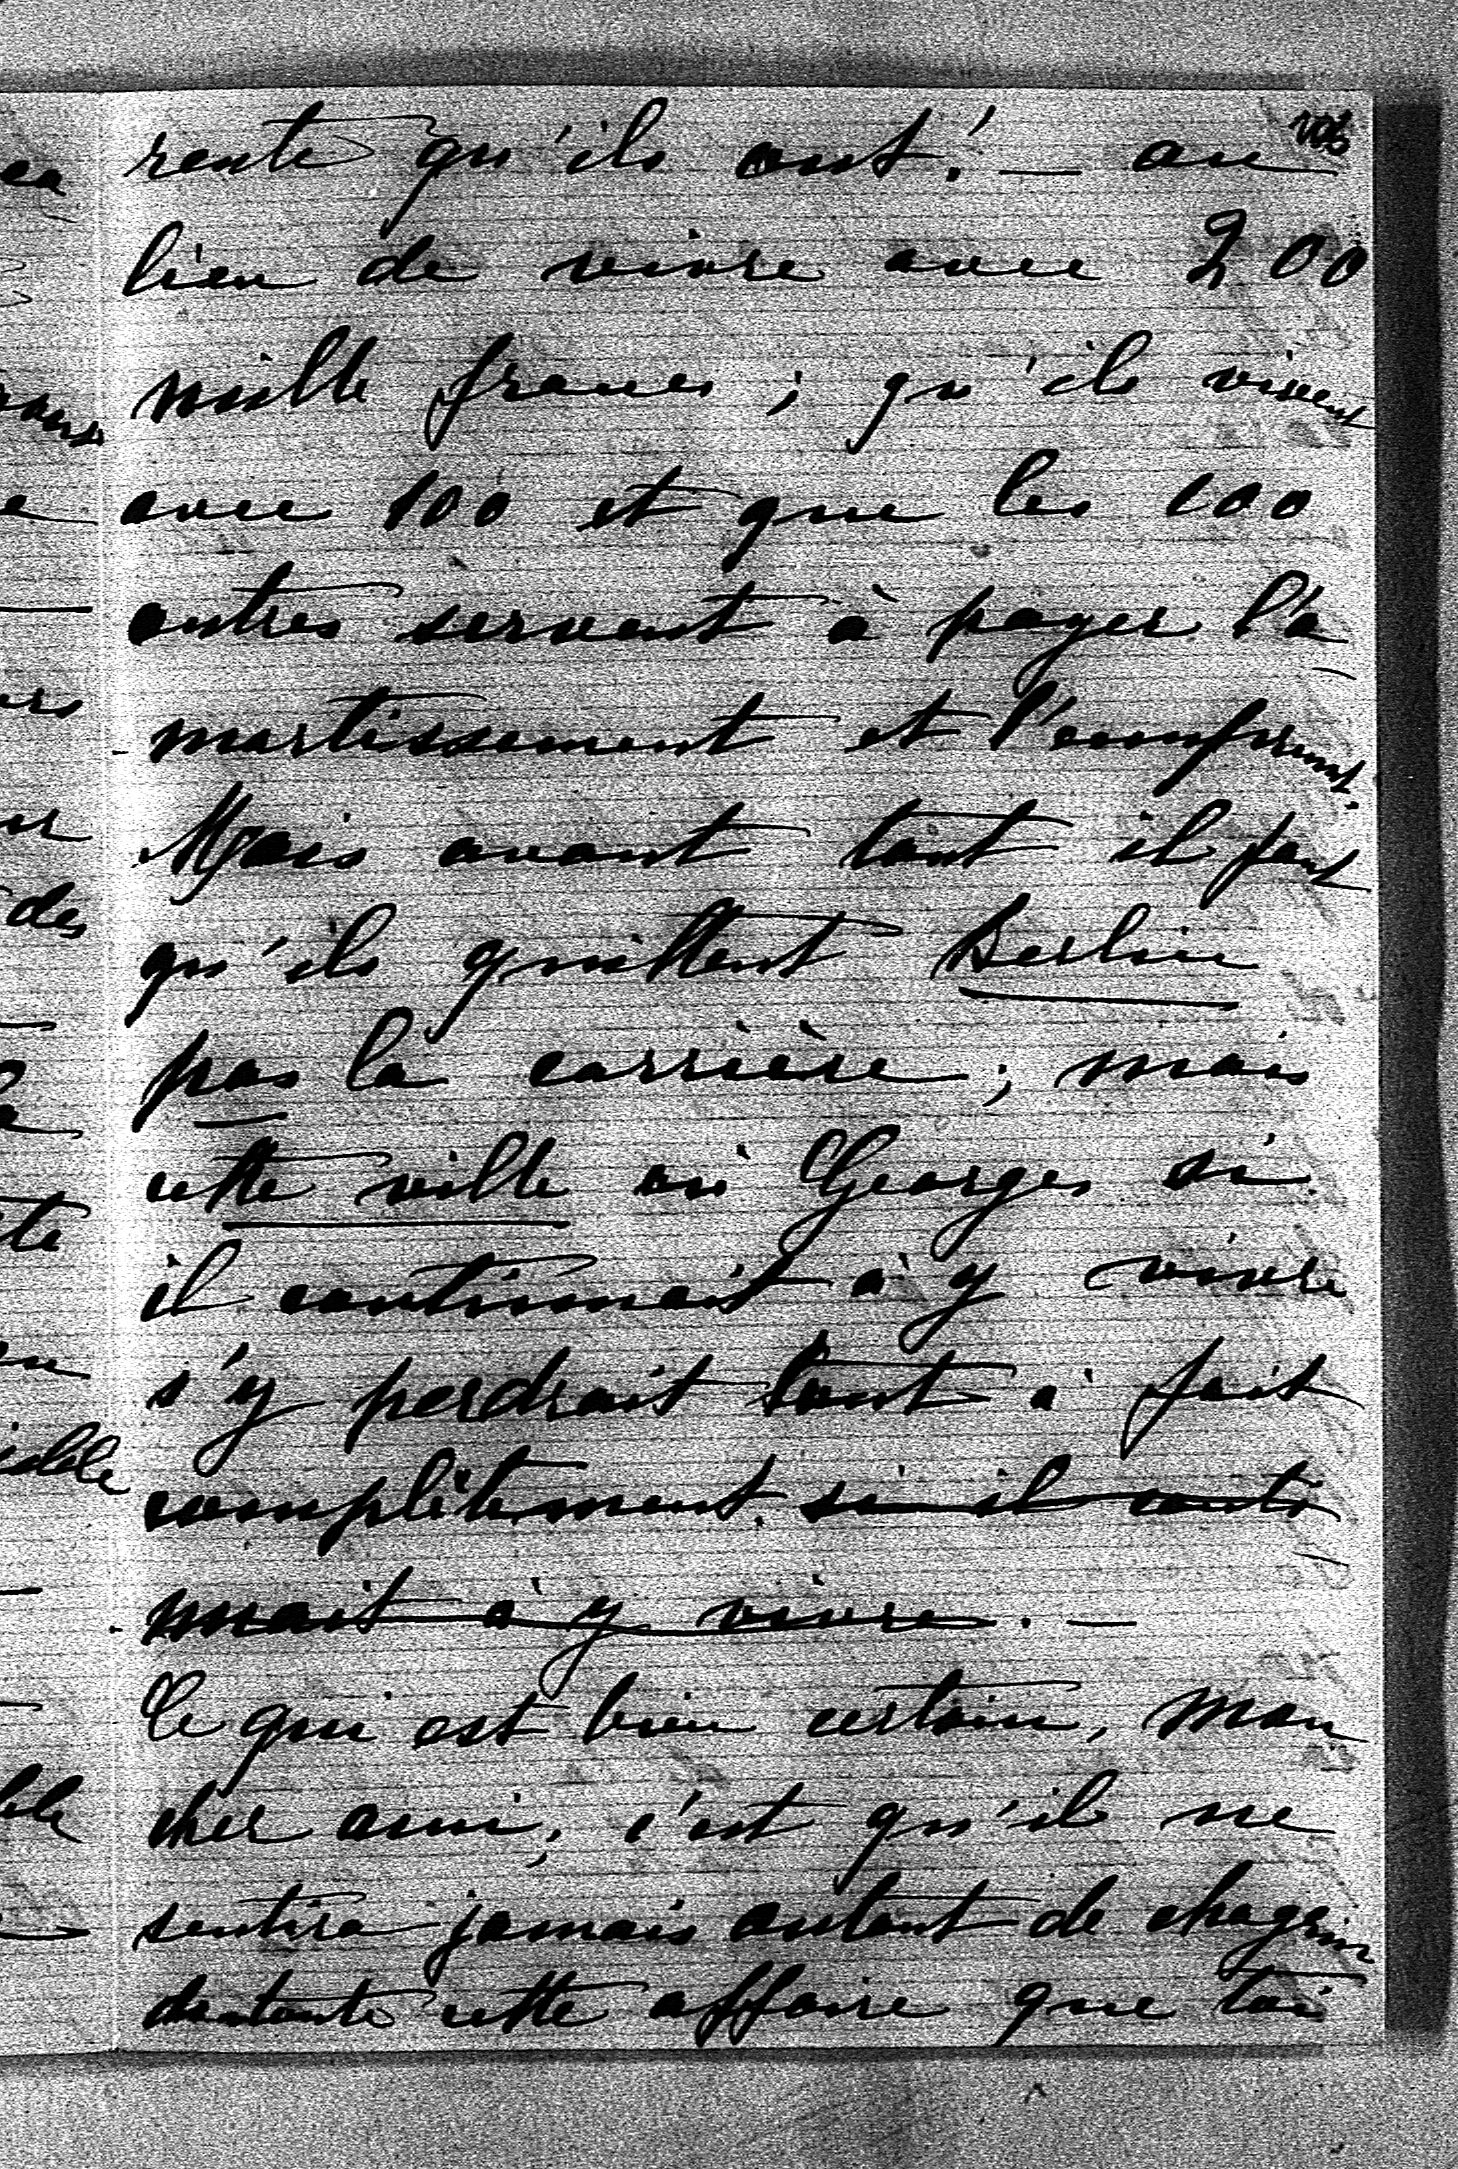 rente qu'ils ont! — au
lieu de vivre avec 200
mille francs; qu'ils vivent
avec 100 et que les 100
autres servent à payer l'a
-mortissement et l'emprunt.
Mais avant tout il faut
qu'ils quittent Berlin
pas la carrière; mais
cette ville où Georges si
il continuait à y vivre
s'y perdrait tout à fait
complètement. si il conti
-nuait à y vivre. —
Ce qui est bien certain, mon
cher ami, c'est qu'il ne
sentira jamais autant de chagrin
de toute cette affaire que toi